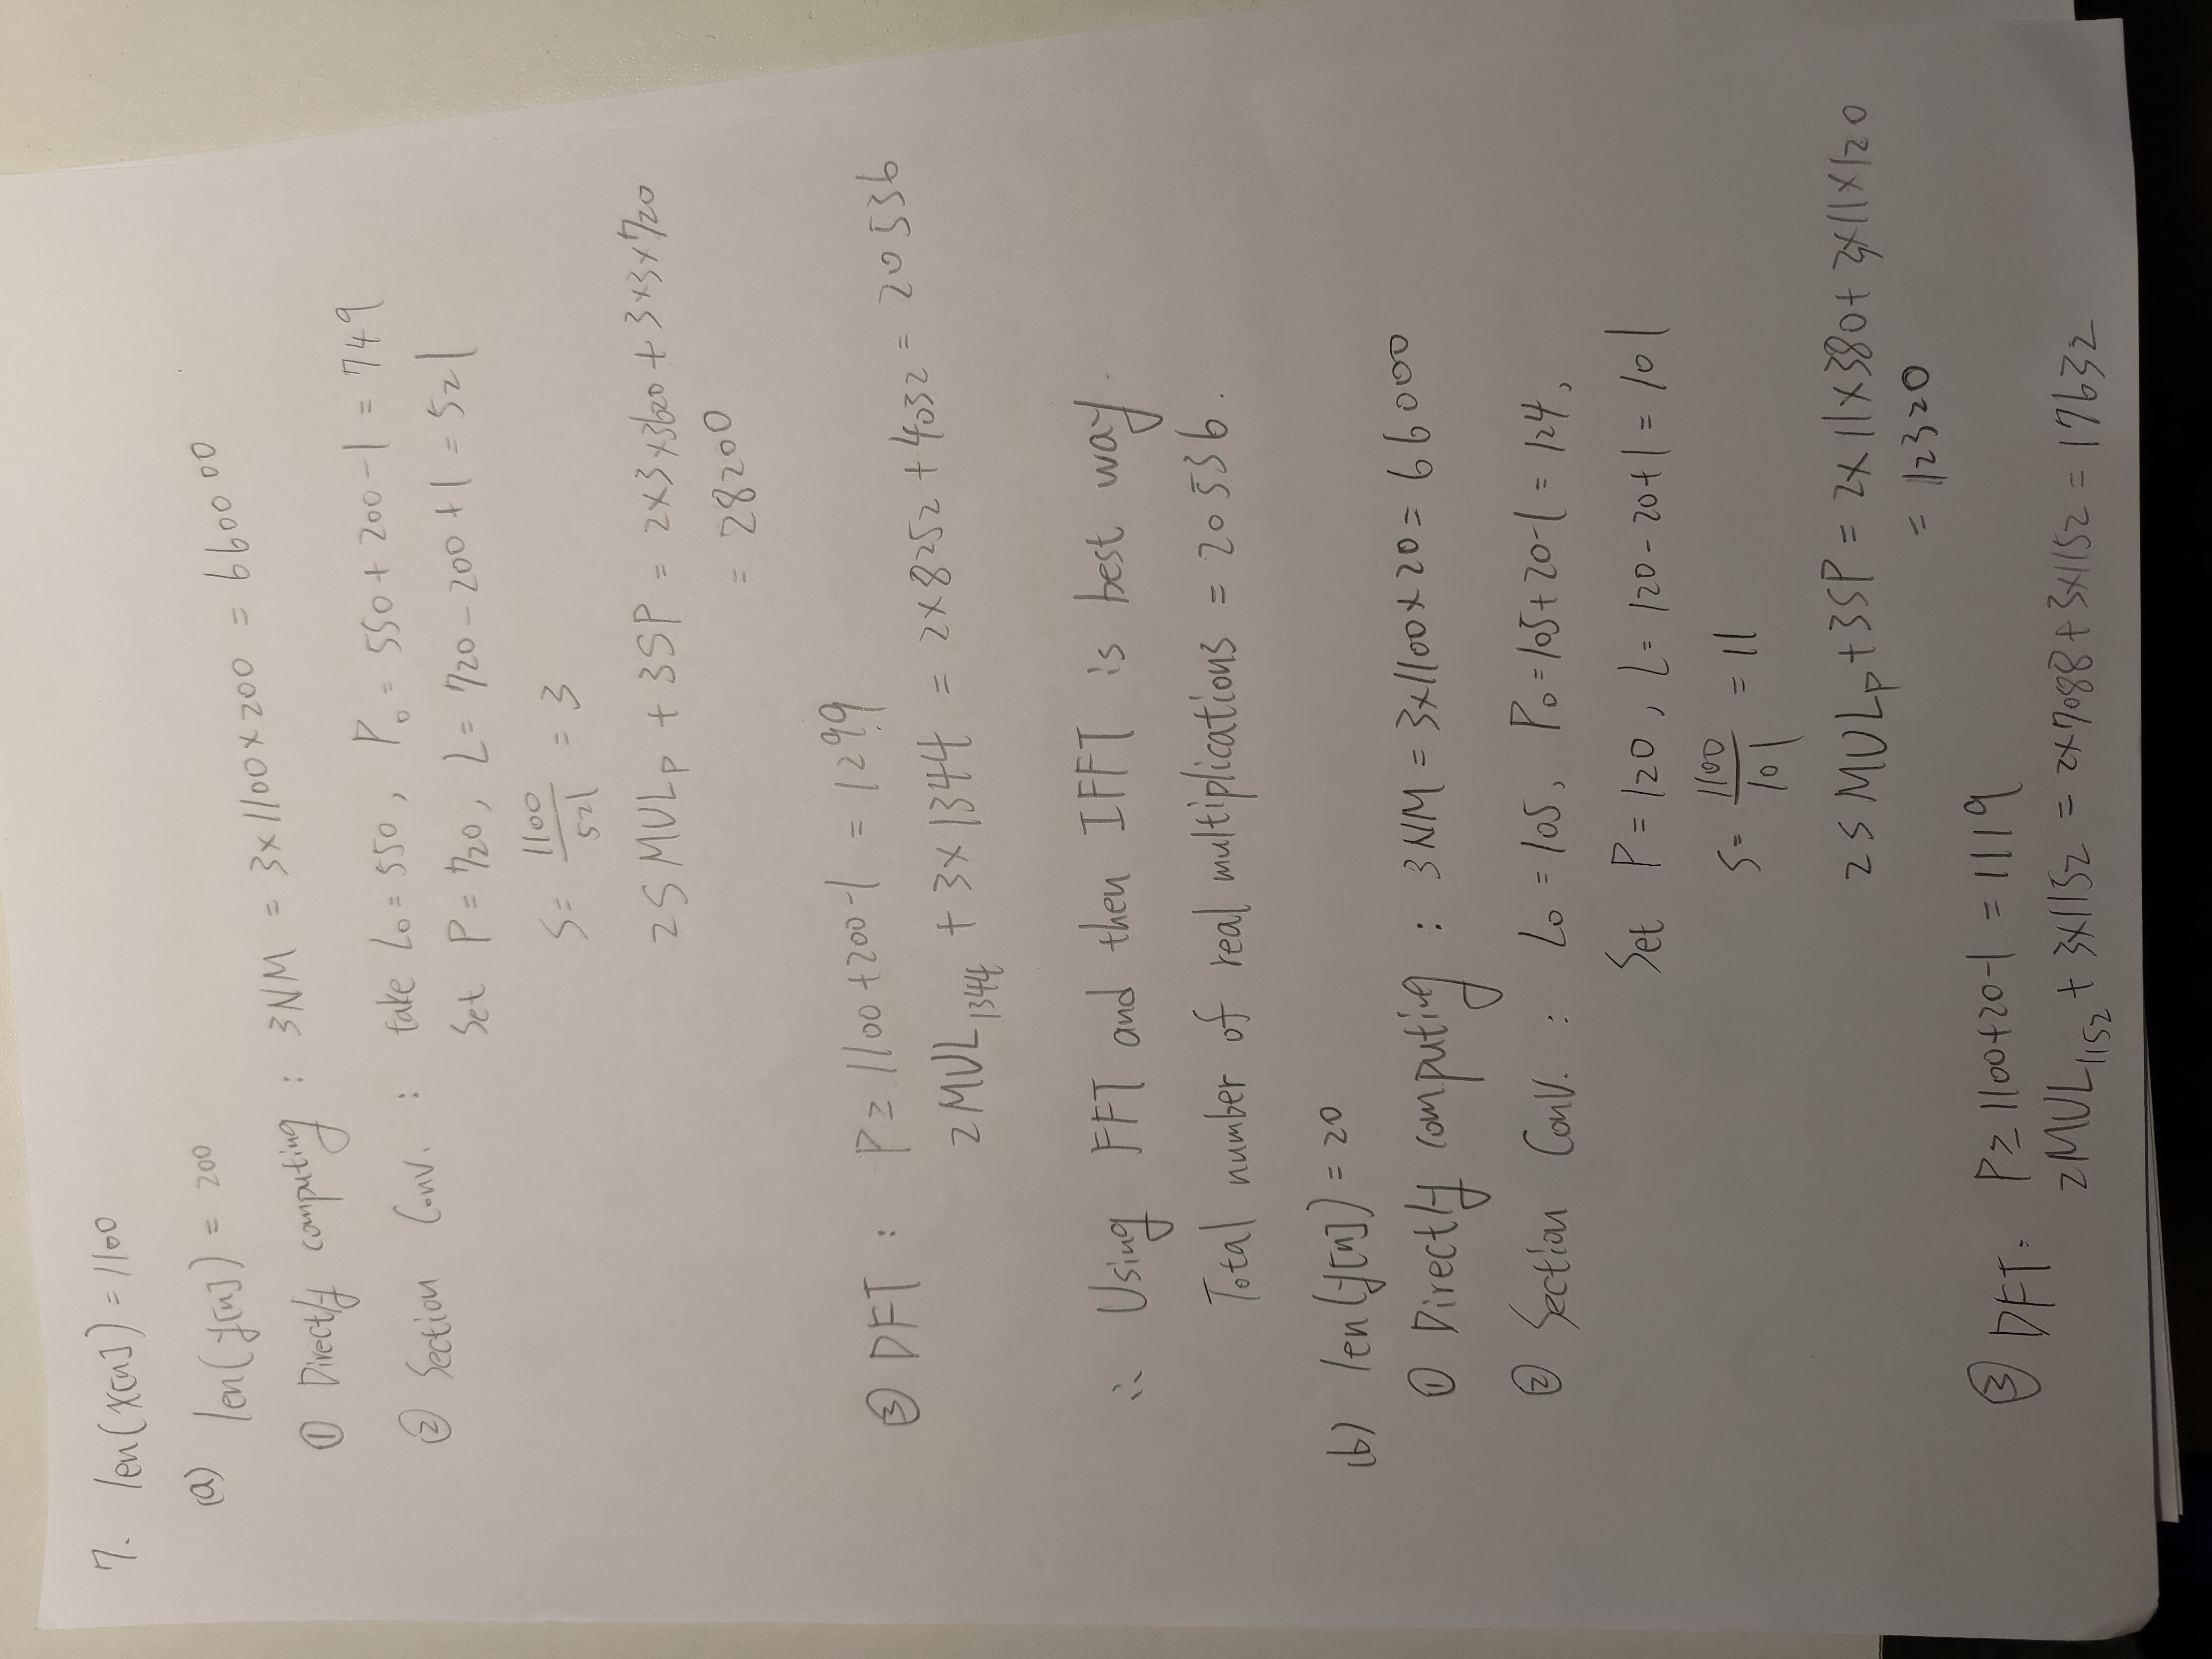 7. len(x[n]) = 1100
(a) len(y[n]) = 200
① Directly computing : 3NM = 3×1100×200 = 660000
② Section Conv. : take L₀ = 550, P₀ = 550+200-1 = 749
Set P = 720, L = 720-200+1 = 521
S = 1100/521 = 3
2S MULₚ + 3SP = 2×3×3620 + 3×3×720
= 28200
③ DFT : P ≥ 1100+200-1 = 1299
2MUL₁₃₄₄ + 3×1344 = 2×8252 + 4032 = 20536
∴ Using FFT and then IFFT is best way.
Total number of real multiplications = 20536.
(b) len(y[n]) = 20
① Directly computing : 3NM = 3×1100×20 = 66000
② Section Conv. : L₀ = 105, P₀ = 105+20-1 = 124,
Set P = 120, L = 120-20+1 = 101
S = 1100/101 = 11
2S MULₚ + 3SP = 2×11×380 + 3×11×120
= 12320
③ DFT : P ≥ 1100+20-1 = 1119
2MUL₁₁₅₂ + 3×1152 = 2×7088 + 3×1152 = 17632